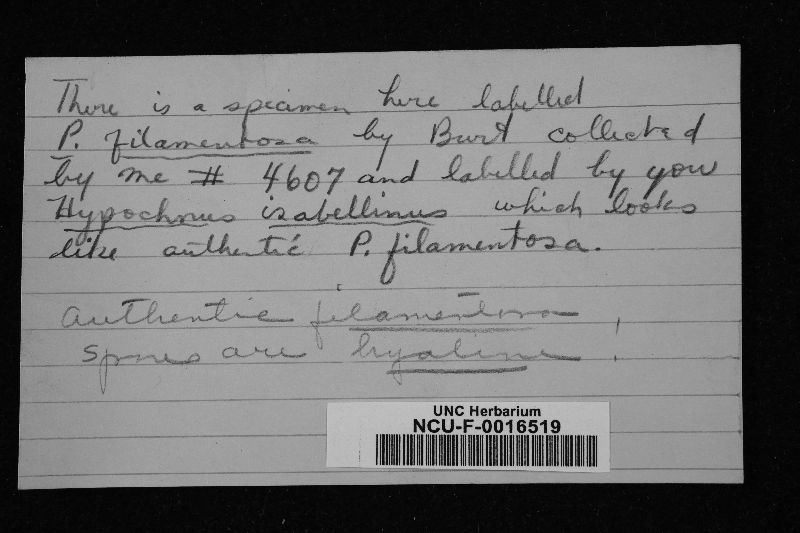 There is a specimen here labelled
P. filamentosa by Burt collected
by me # 4607 and labelled by you
Hypochnus isabellinus which looks
like authentic P. filamentosa.
Authentic filamentosa,
spores are hyaline.
UNC Herbarium
NCU-F-0016519